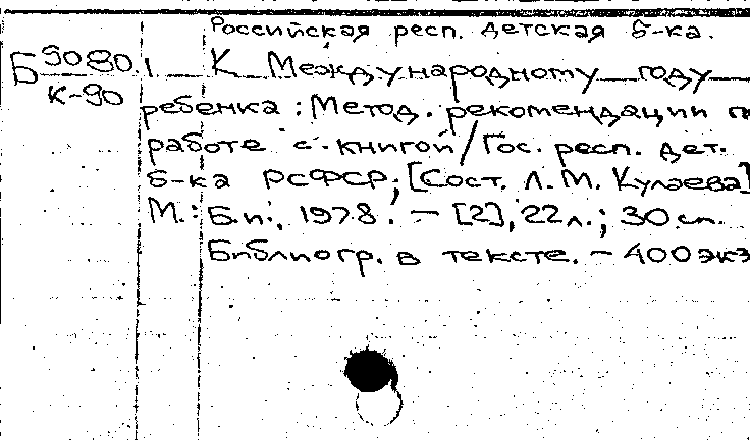 Российская респ. детская б-ка.
Б 9080
К-90
К Международному году
ребенка : Метод. рекомендации п
работе с книгой / Гос. респ. дет.
б-ка РСФСР; [Сост. Л. М. Кулаева]
М.: Б.и., 1978. — [2], 22 л.; 30 см.
Библиогр. в тексте. — 400 экз